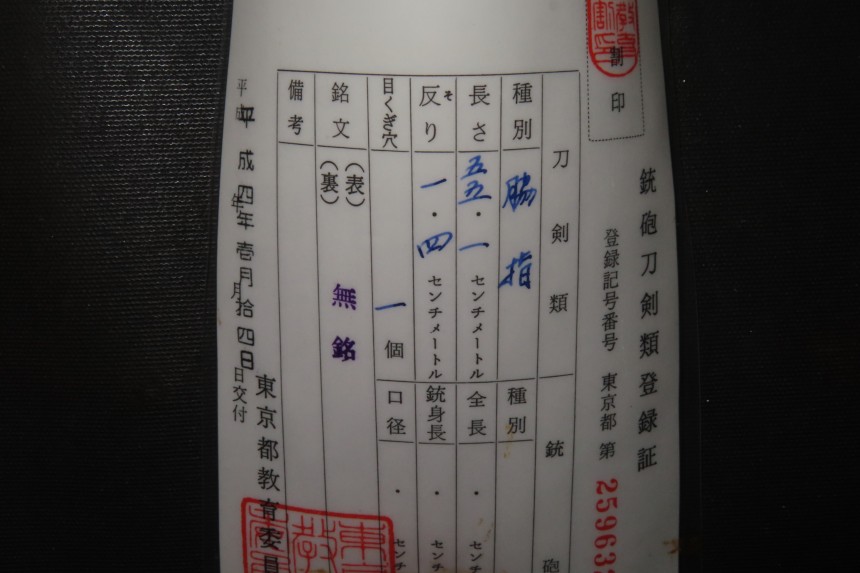 銃砲刀剣類登録証
割印
登録記号番号 東京都 第 25963
刀剣類
銃砲
種別 脇指
種別
長さ 五五・一 センチメートル
全長 ・ センチ
反り そ 一・四 センチメートル
銃身長 ・ センチ
目くぎ穴 一個
口径 ・ センチ
銘文 (表) 無銘
(裏)
備考
平成四年壱月拾四日
年 月 日交付
東京都教育委員